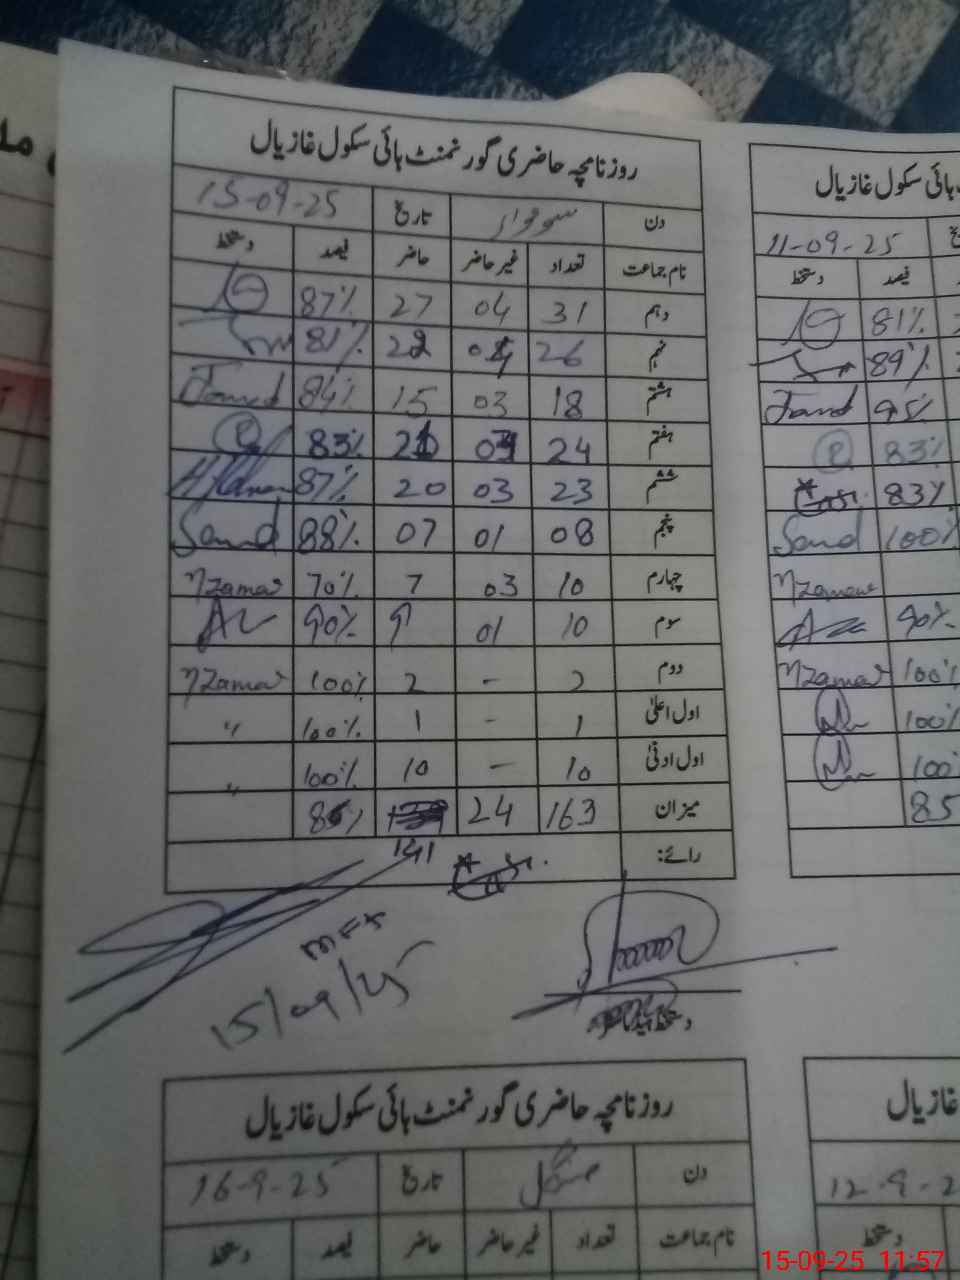 روزنامچہ حاضری گورنمنٹ ہائی سکول غازیال
دن سوموار تاریخ 15-09-25
نام جماعت تعداد غیر حاضر حاضر فیصد دستخط
دہم 31 04 27 87%
نہم 26 22 81%
ہشتم 18 03 15 84%
ہفتم 24 83%
ششم 23 03 20 87%
پنجم 08 01 07 88% Saud
چہارم 10 03 7 70% nzamar
سوم 10 01 9 90%
دوم 2 - 2 100% nzamar
اول اعلیٰ 1 - 1 100% "
اول ادنیٰ 10 - 10 100% "
میزان 163 24 139 %
141
رائے:
15/09/25
دستخط ہیڈ ماسٹر
روزنامچہ حاضری گورنمنٹ ہائی سکول غازیال
دن منگل تاریخ 16-9-25
نام جماعت تعداد غیر حاضر حاضر فیصد دستخط
ہائی سکول غازیال
11-09-25
فیصد دستخط
81%
89%
95%
83%
83%
100% Saud
nzamar
90%
100% nzamar
100%
100
85
غازیال
12-9-2
دستخط
15-09-25 11:57